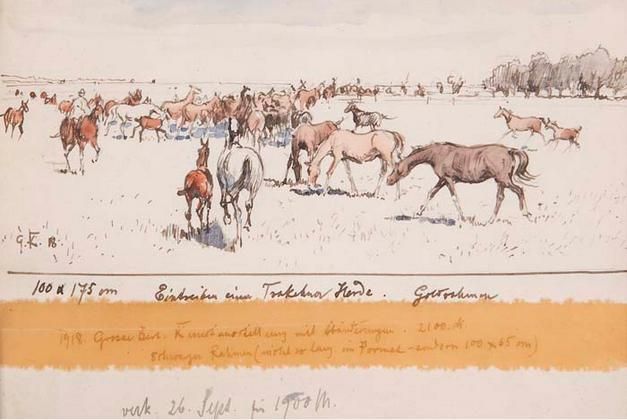 G.K. 18
100 x 175 cm Eintreiben einer Trakehner Herde.
1918. Grosse Berl. Kunstausstellung mit Abänderungen. 2100.M.
Schwarzer Rahmen (nicht so lang im Format - sondern 100 x 65 cm)
verk. 26. Sept. für 1900 M.